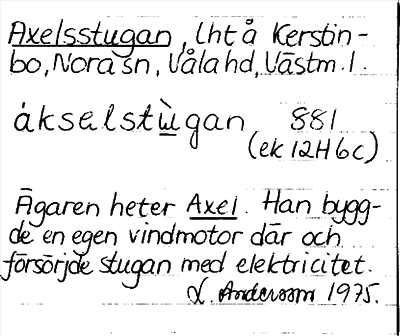 Axelsstugan, lht å Kerstin-
bo, Nora sn, Våla hd, Västm. l.
ákselstu̖̇gan 881
(ek 12H 6c)
Ägaren heter Axel. Han bygg-
de en egen vindmotor där och
försörjde stugan med elektricitet.
L. Andersson 1975.